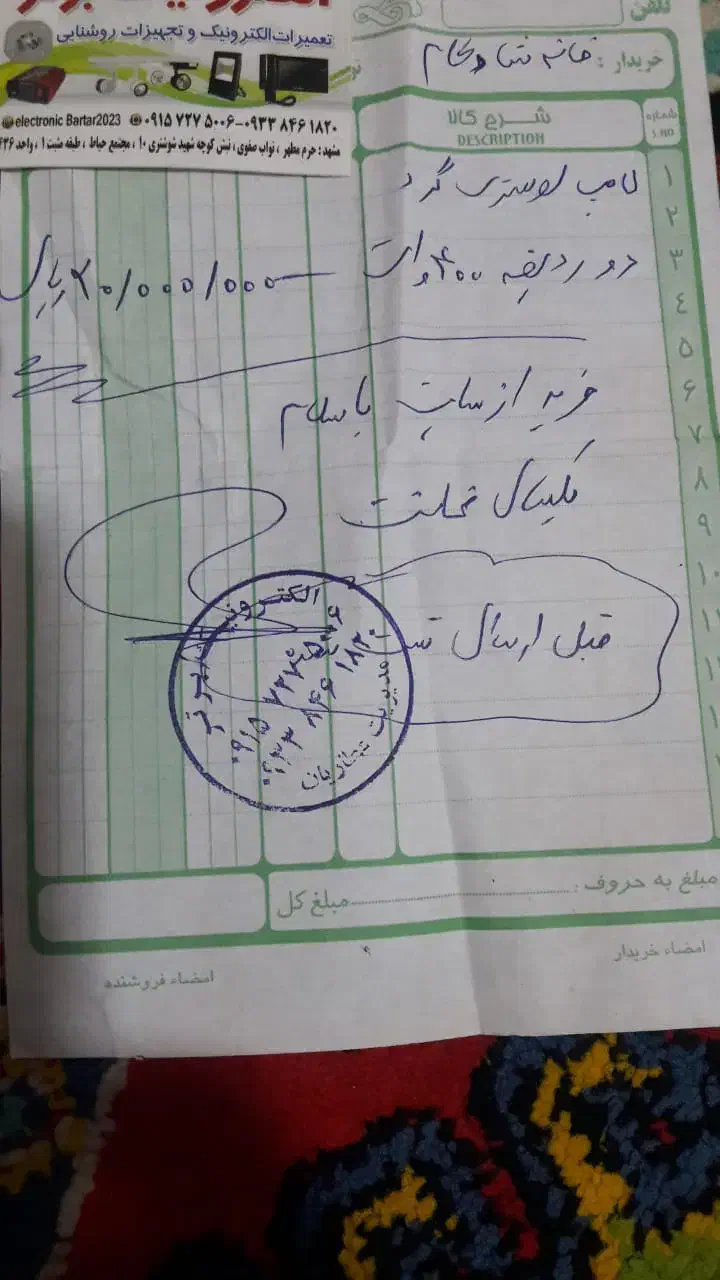 تلفن
تعمیرات الکترونیک و تجهیزات روشنایی
electronic Bartar2023 ۰۹۱۵ ۷۲۷ ۵۰۰۶-۰۹۳۳ ۸۴۶ ۱۸۲۰
مشهد : حرم مطهر ، نواب صفوی ، نبش کوچه شهید شوشتری ۱۰ ، مجتمع حیاط ، طبقه مثبت ۱ ، واحد
خریدار :
شماره
S.NO
شرح کالا
DESCRIPTION
۱ لامپ لوستری گرد
۲
۳ دو ردیفه ۴۰۰ وات ۲۰/۰۰۰/۰۰۰ ریال
۴
۵
۶ خرید از سایت باسلام
۷
۸ یکسال ضمانت
۹
۱۰
قبل ارسال تست
الکترونیک برتر
۰۹۱۵ ۷۲۷ ۵۰۰۶
۰۹۳۳ ۸۴۶ ۱۸۲۰
مبلغ به حروف :
مبلغ کل
امضاء خریدار
امضاء فروشنده